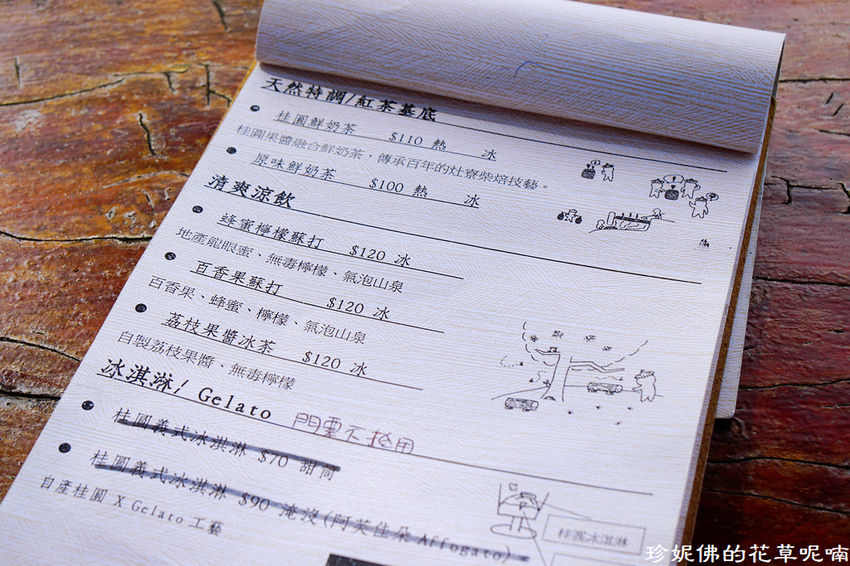 天然特調/紅茶基底
桂圓鮮奶茶 $110 熱 冰
桂圓果醬融合鮮奶茶，傳承百年的灶寮柴焙技藝。
原味鮮奶茶 $100 熱 冰
清爽涼飲
蜂蜜檸檬蘇打 $120 冰
地產龍眼蜜、無毒檸檬、氣泡山泉
百香果蘇打 $120 冰
百香果、蜂蜜、檸檬、氣泡山泉
荔枝果醬冰茶 $120 冰
自製荔枝果醬、無毒檸檬
冰淇淋/ Gelato
桂圓義式冰淇淋 $70 甜筒
桂圓義式冰淇淋 $90 淹沒(阿芙佳朵 Affogato)
自產桂圓 X Gelato 工藝
桂圓冰淇淋
珍妮佛的花草呢喃